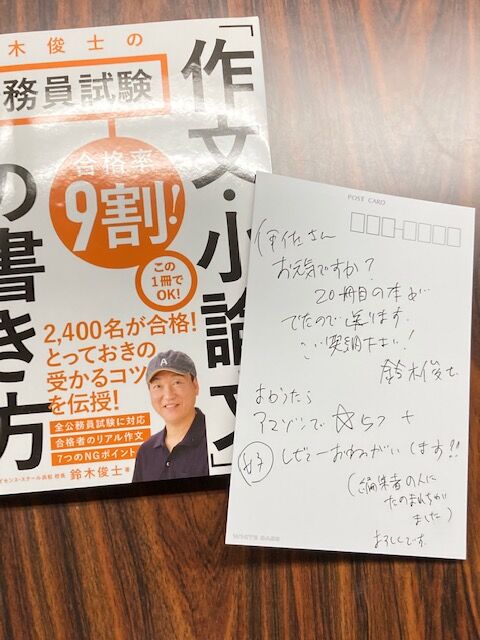 木俊士の
務員試験
「作文・小論文」
の書き方
合格率
9割!
この
1冊で
OK!
2,400名が合格!
とっておきの
受かるコツ
を伝授!
全公務員試験に対応
合格者のリアル作文
7つのNGポイント
イセンス・スクール浜松 校長 鈴木俊士
A
POST CARD
伊佐さん
お元気ですか?
20冊目の本が
でたので送ります。
ご笑納下さい!
鈴木俊士
よかったら
アマゾンで ☆5つ +
好 レビューおねがいします!!
(編集者の人に
たのまれちゃい
ました)
よろしくです。
WHITE BASE